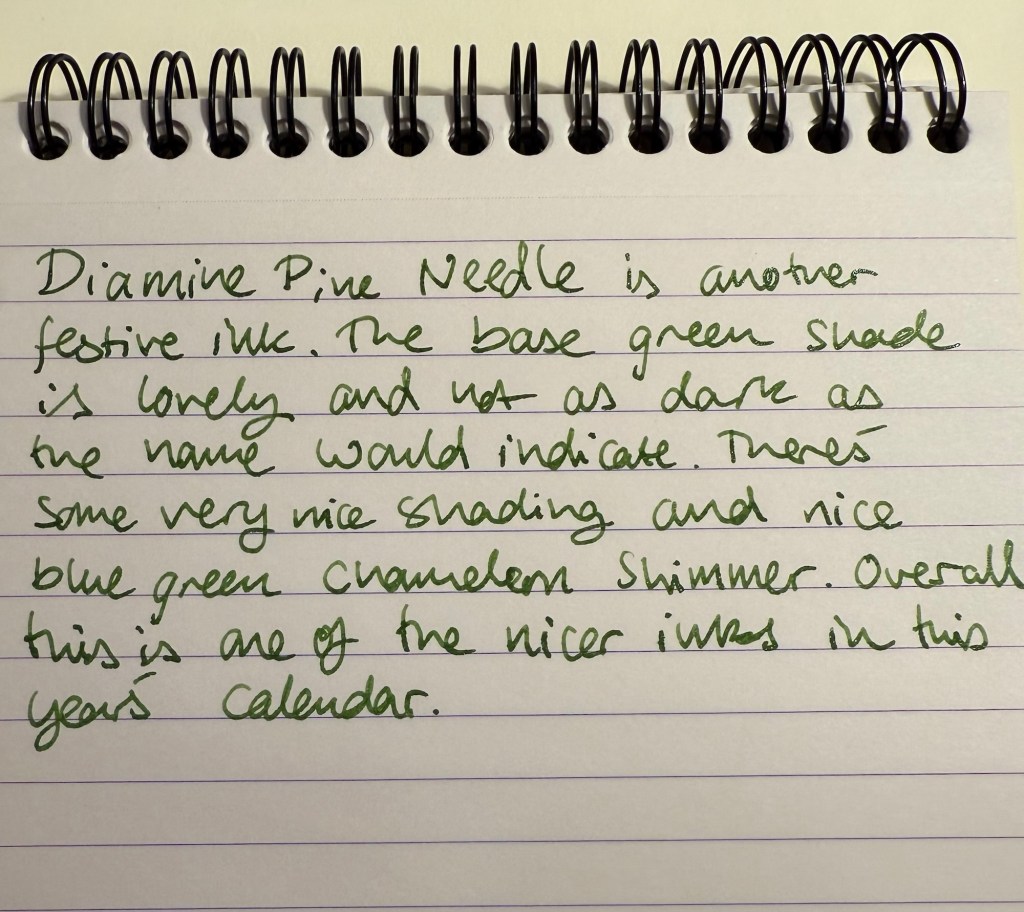 Diamine Pine Needle is another
festive ink. The base green shade
is lovely and not as dark as
the name would indicate. There's
some very nice shading and nice
blue green chameleon shimmer. Overall
this is one of the nicer inks in this
year's calendar.